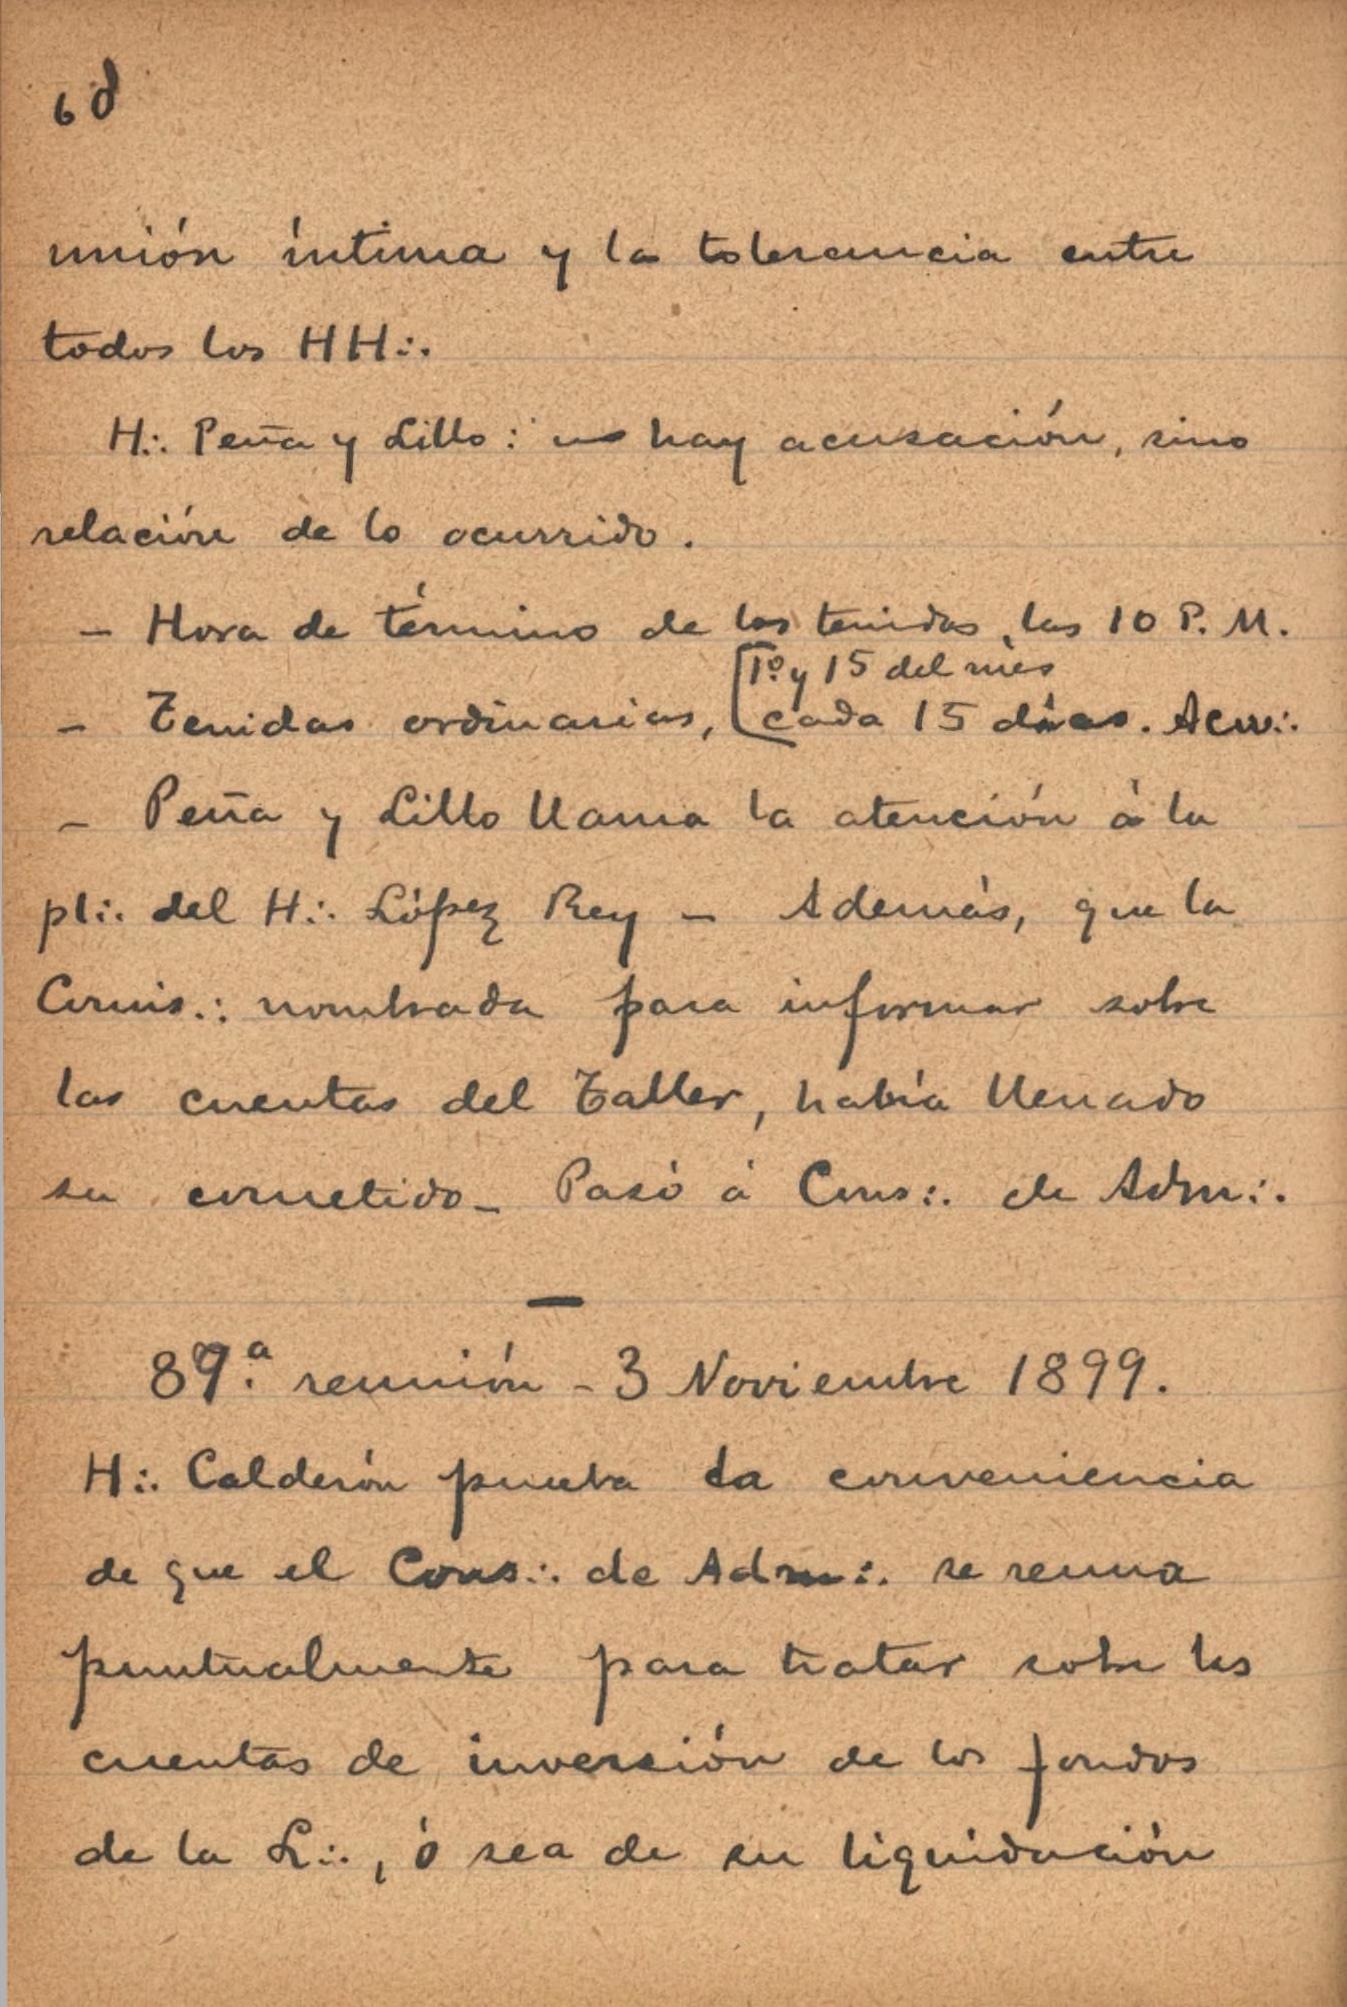 68
unión íntima y la tolerancia entre
todos los HH∴
H∴ Peña y Lillo: no hay acusación, sino
relación de lo ocurrido.
- Hora de término de las tenidas, las 10 P. M.
1º y 15 del mes
- Tenidas ordinarias, cada 15 días. Acu∴
- Peña y Lillo llama la atención á la
pl∴ del H∴ López Rey - Además, que la
Comis∴ nombrada para informar sobre
las cuentas del Taller, había llenado
su cometido - Pasó á Cons∴ de Adm∴
—
89.ª reunión - 3 Noviembre 1899.
H∴ Calderón prueba la conveniencia
de que el Cons∴ de Adm∴ se reuna
puntualmente para tratar sobre las
cuentas de inversión de los fondos
de la L∴, ó sea de su liquidación